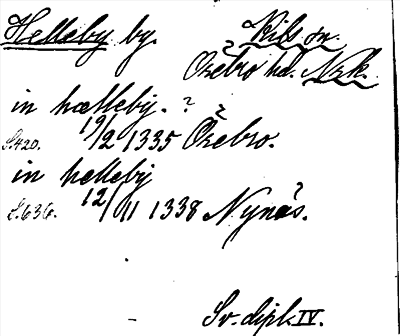 Helleby by. Kils sn.
? Örebro hd. Nrk.
in hælleby. ? ?
S.420. 19/2 1335 Örebro.
in helleby ?
S.636. 12/11 1338 Nynäs.
Sv. dipl. IV.